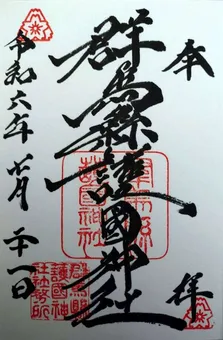 奉拝
群馬縣護國神社
令和六年十一月二十一日
群馬縣
護國神社
群馬縣
護國神
社社務所